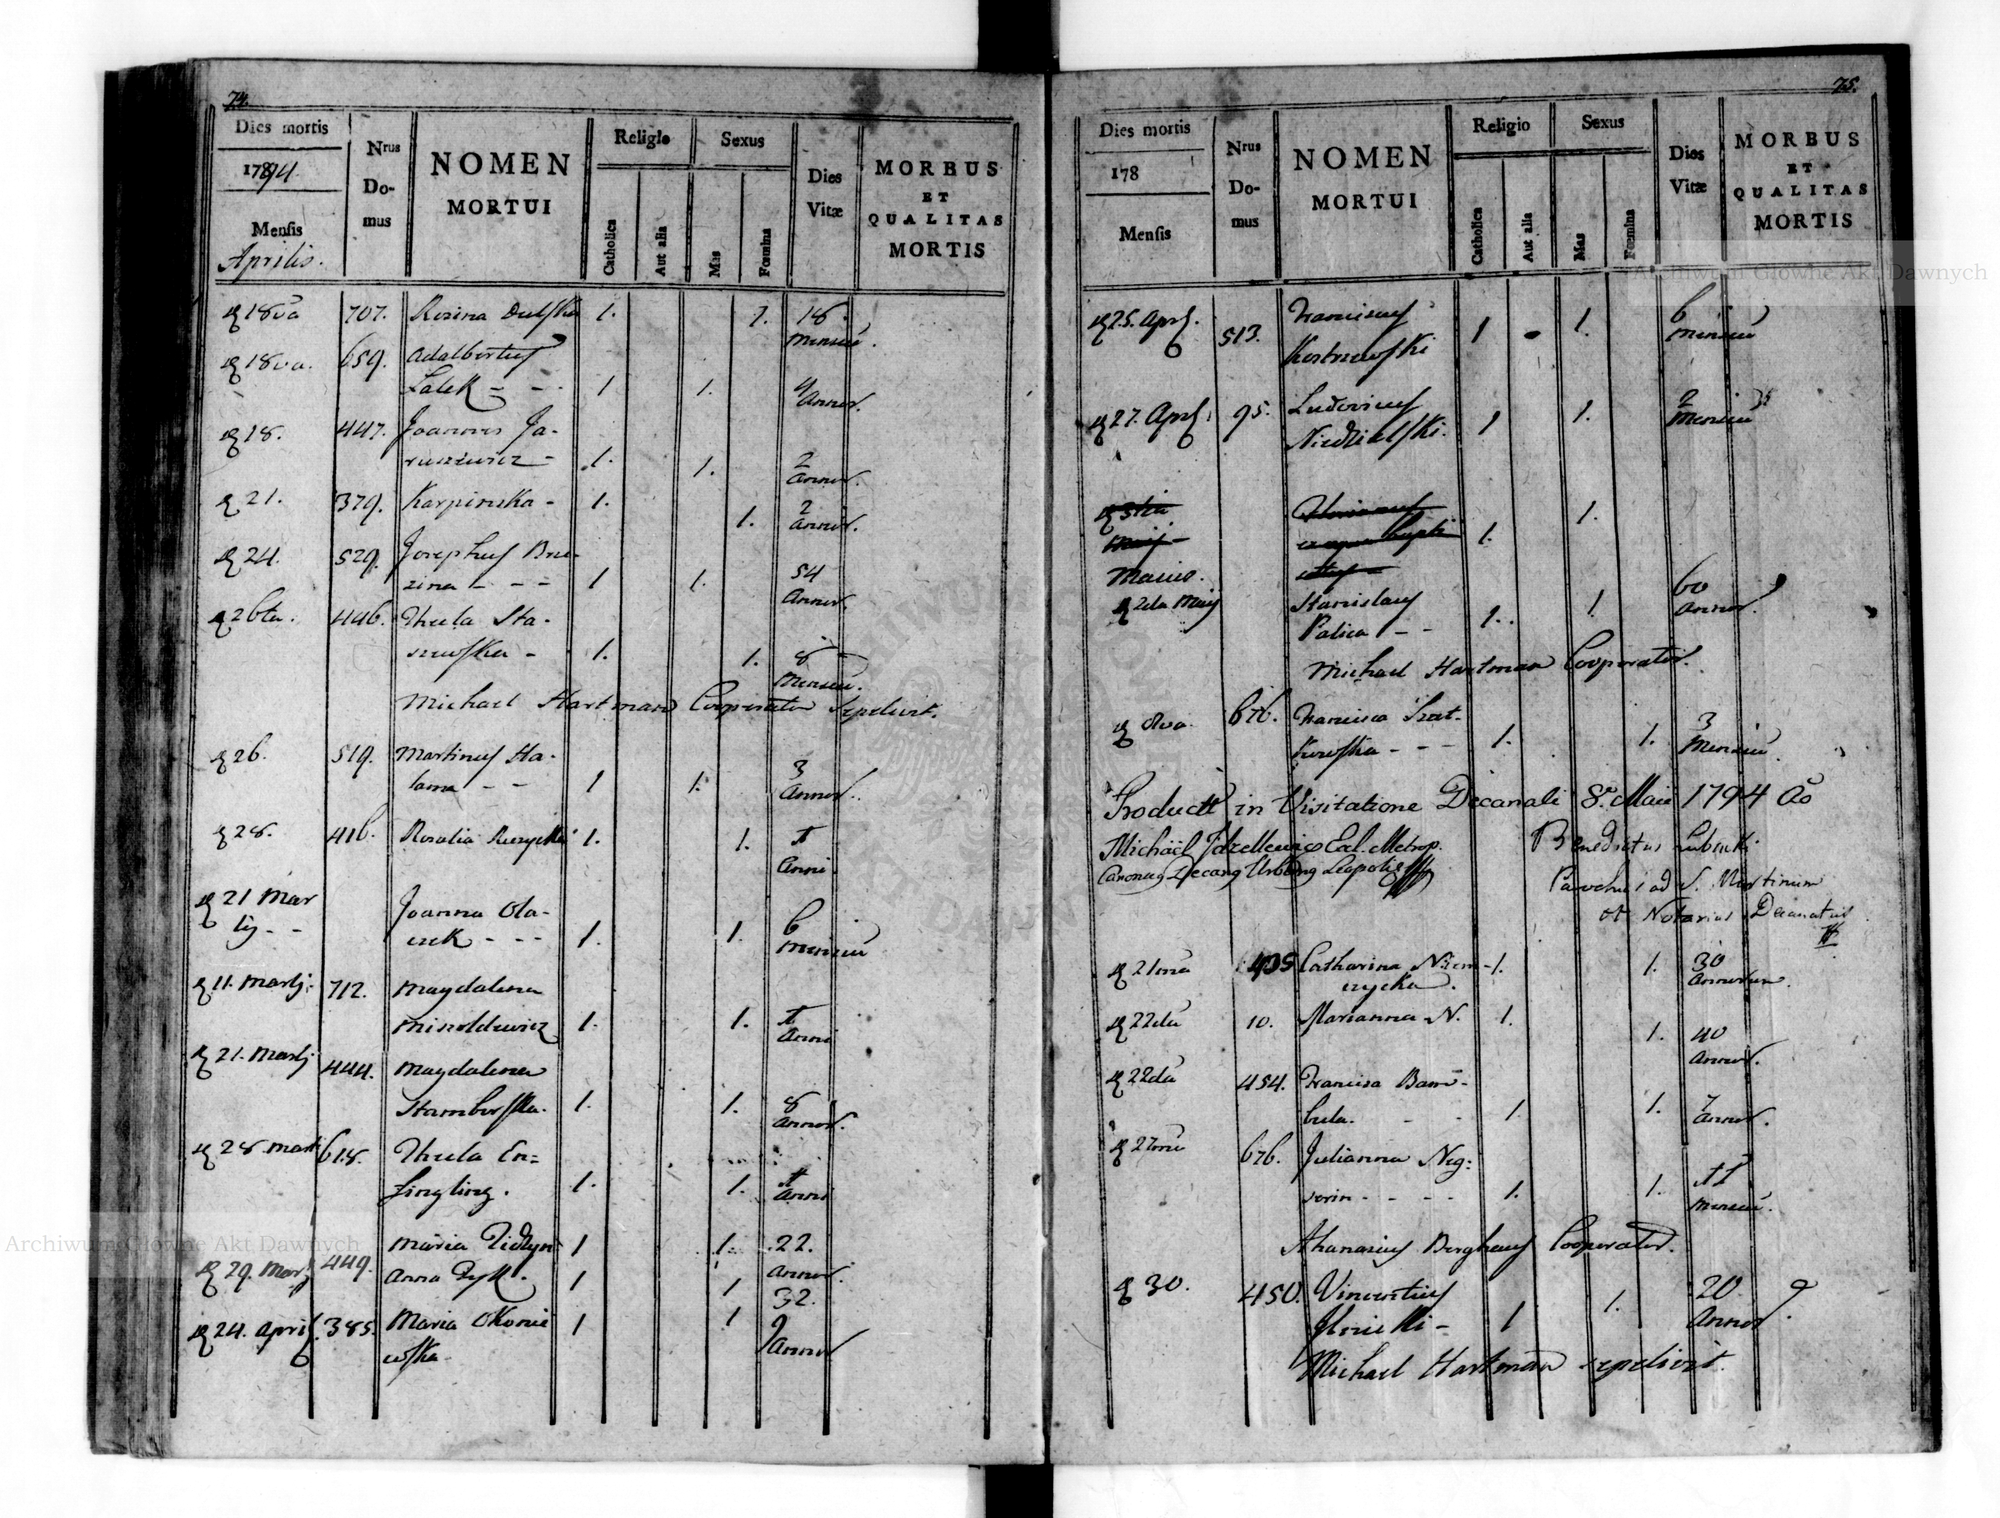 74.
Dies mortis
1794
Mensis
Aprilis.
Nrus
Do-
mus
NOMEN
MORTUI
Religio
Catholica
Aut alia
Sexus
Mas
Fœmina
Dies
Vitæ
MORBUS
ET
QUALITAS
MORTIS
18va 707. Rosina Dulska 1. 1. 18.
Mensiu.
18va. 659. Adalbertus
Lalek - - 1 1. 4
Annor.
18. 447. Joannes Ja-
ruszewicz - 1. 1. 2
Annor.
21. 379. Karpinska - 1. 1. 2
Annor.
24. 529. Josephus Bre-
zina - - - 1 1. 54
Annor.
26ta. 446. Thecla Sta-
szewska - 1. 1. 8
Mensiu.
Michael Hartman Cooperator sepelivit.
26. 519. Martinus Ha-
lama - - 1 1. 3
Annor.
28. 416. Rosalia 1. 1. 1
Anni
21 Mar
tij - - Joanna Ola-
czek - - - 1. 1. 6
Mensiu
11. Martij. 712. Magdalena
1. 1. 1
Anni
21. Martij 444. Magdalena
Stamberska. 1. 1. 8
Annor.
28 Marti 618. Thecla En=
zingling. 1. 1. 1
Anni
Maria 1 1. 22.
Annor.
29. Marti 449. Anna Dyk. 1 1 32.
24. April. 385. Maria Okonie
wska - 1 1 9
Annor
75.
Dies mortis
178
Mensis
Nrus
Do-
mus
NOMEN
MORTUI
Religio
Catholica
Aut alia
Sexus
Mas
Fœmina
Dies
Vitæ
MORBUS
ET
QUALITAS
MORTIS
25. Apr. 513. Franciscus
Kostrzewski 1 1. 6
Mensiu
27. Apr. 95. Ludovicus
Niedzielski. 1 1. 2
Mensiu
1. 1.
Maius.
2da Maij Stanislaus
Palica - - 1. 1 60
Annor.
Michael Hartman Cooperator.
8va 676. Francisca Szat-
kowska - - - 1. 1. 3
Mensiu.
Product in Visitatione Decanali 8. Maii 1794 Ao
Michäel Eccl. Metrop.
Canonicus Decanus Urbanus Leopolis
Benedictus
Parochus ad S. Martinum
et Notarius Decanatus
21ma 405 Catharina Niem-
czycka. 1. 1. 30
Annorum.
22da 10. Marianna N. 1. 1. 40
Annor.
22da 454. Francisca Bam-
bula. - - 1 1. 7
Annor.
27ma 676. Julianna Neg:
serin - - - - 1. 1. 11
Mensiu.
Athanasius Berghaus Cooperator.
30. 450. Vincentius
- 1 1. 20
Annor.
Michael Hartman sepelivit.
Archiwum Główne Akt Dawnych
Archiwum Główne Akt Dawnych